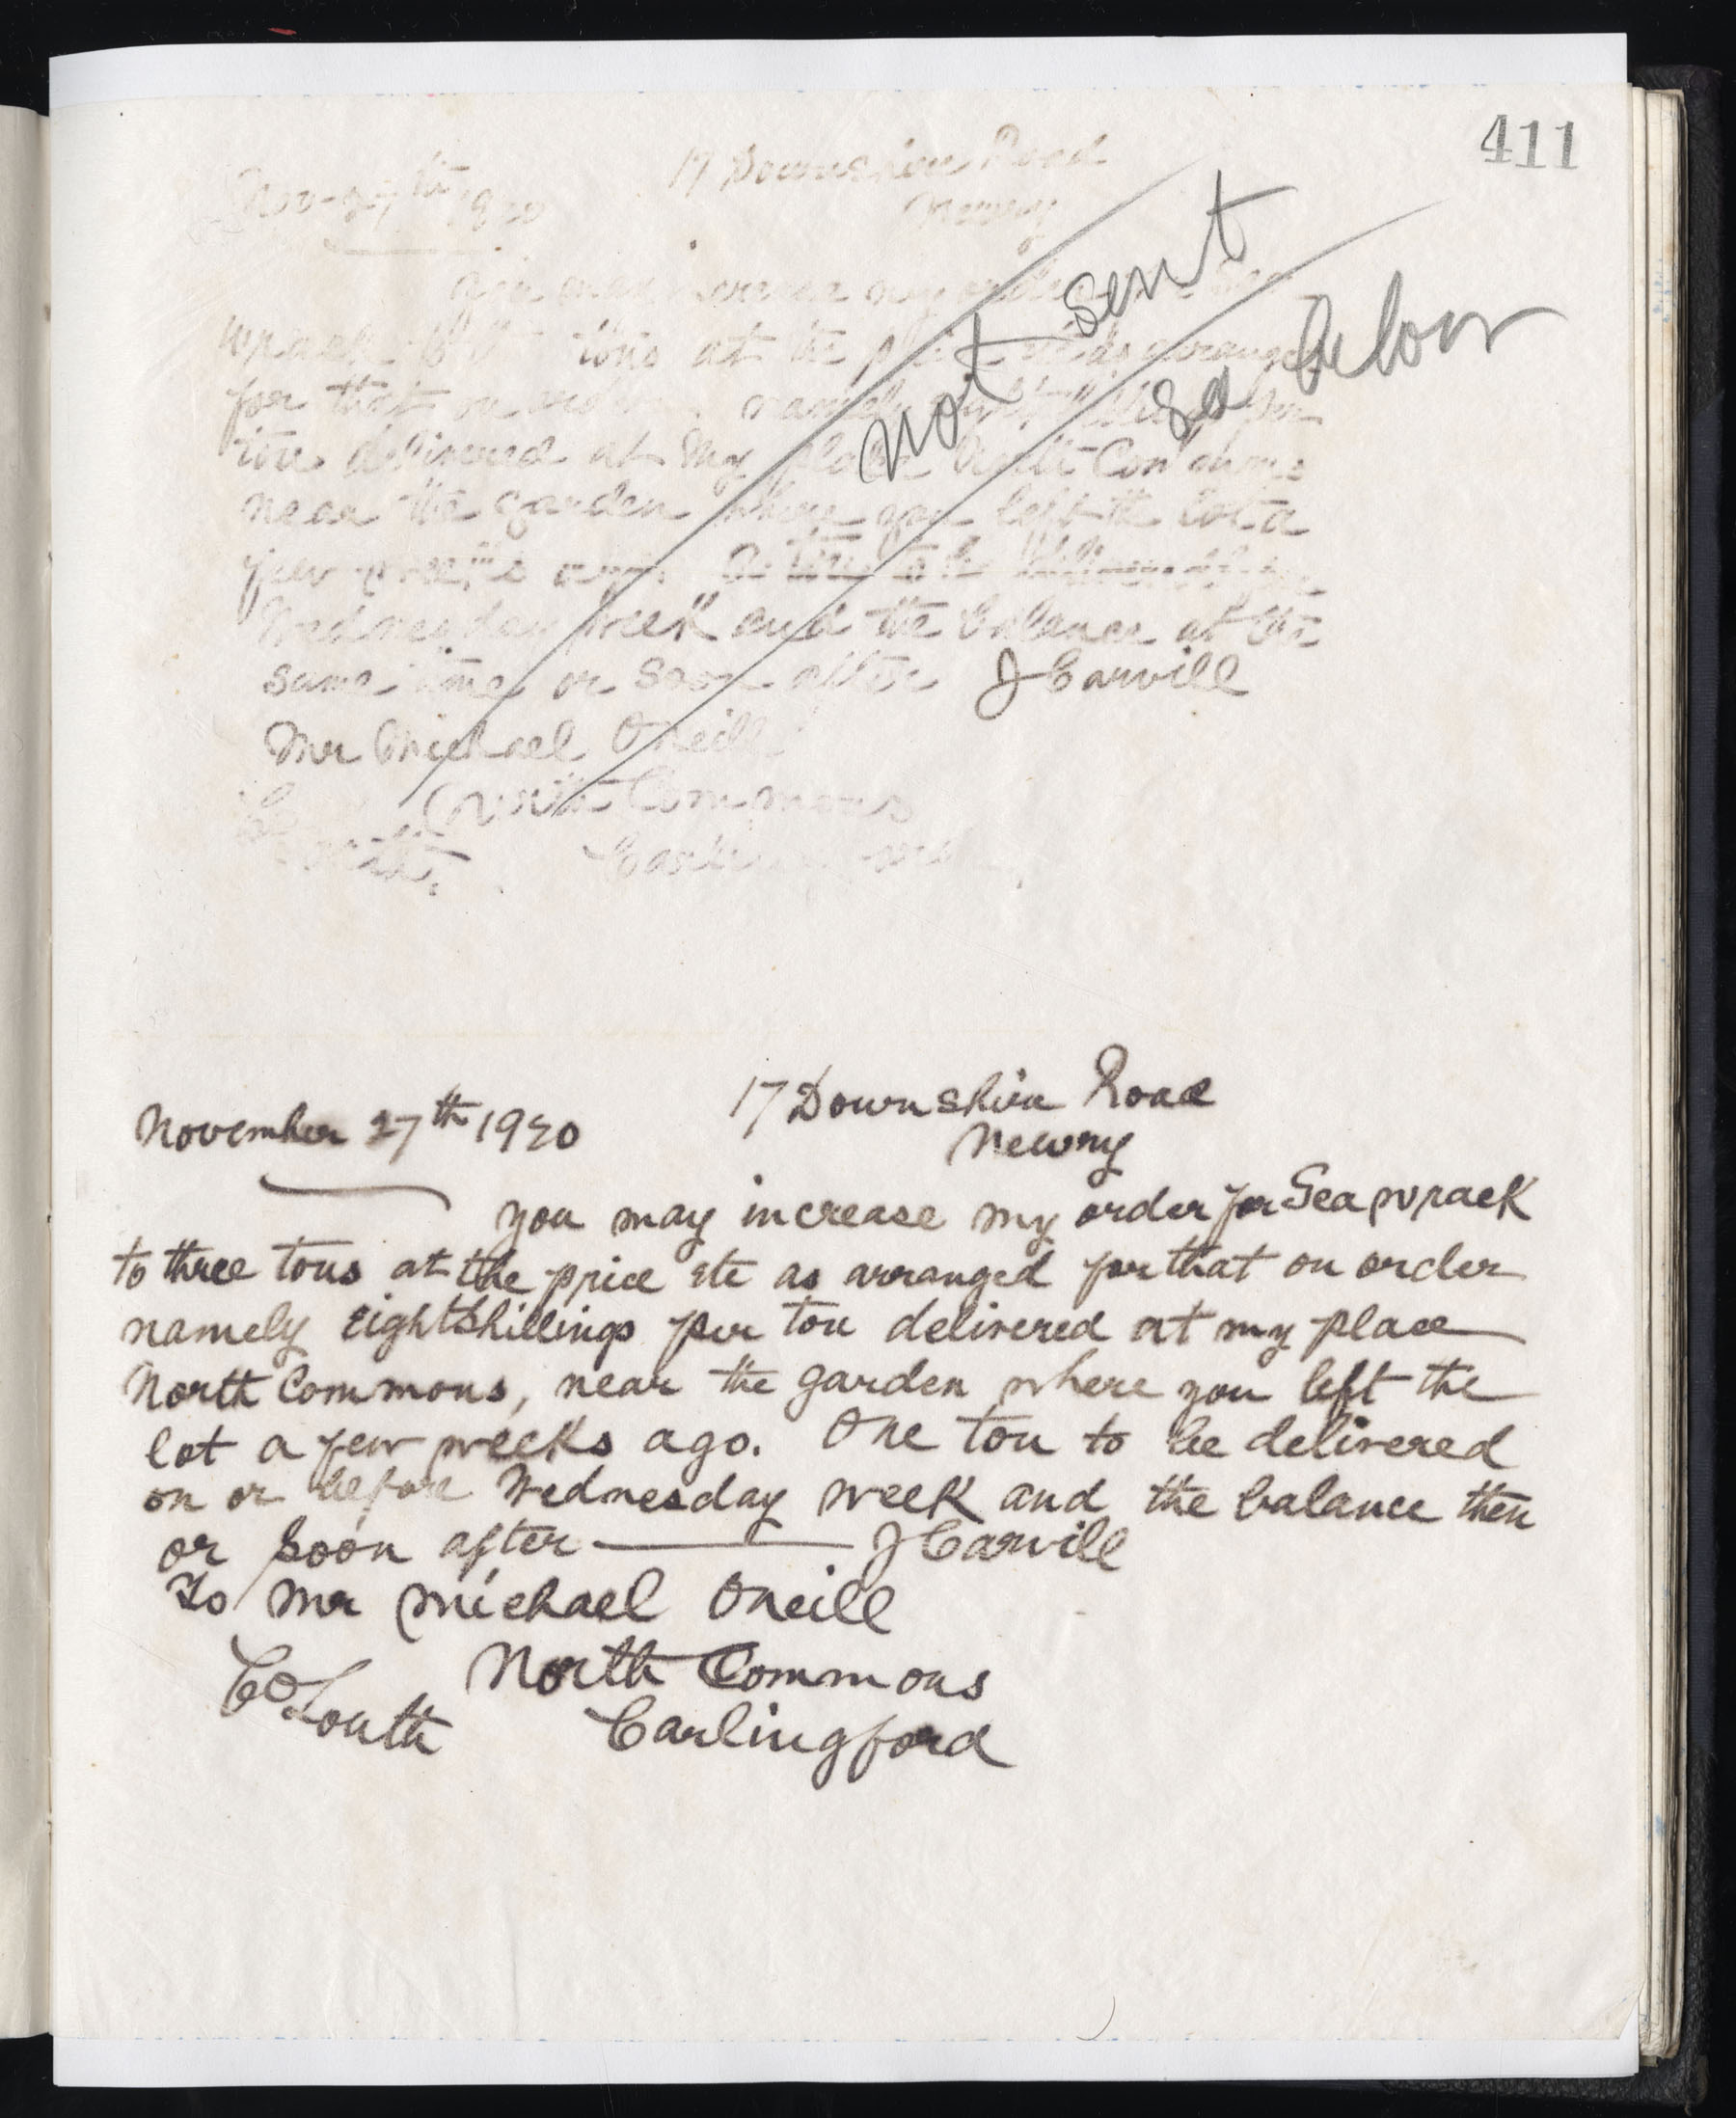 411
17 Downshire Road
Nov. 27th 1920
Newry
you may increase my order
wrack tons at the as arranged
for that on order namely per
ton delivered at my place North Commons
near the garden where you left the lot a
few weeks ago. to be delivered
Wednesday week and the balance at the
same time or soon after J Carvill
Mr Michael Oneill
North Commons
not sent
see below
17 Downshire Road
November 27th 1920
Newry
you may increase my order for Sea wrack
to three tons at the price etc as arranged for that on order
namely eight shillings per ton delivered at my place
North Commons, near the garden where you left the
lot a few weeks ago. One ton to be delivered
on or before Wednesday week and the balance then
or soon after J Carvill
To Mr Michael Oneill
North Commons
Co Louth Carlingford